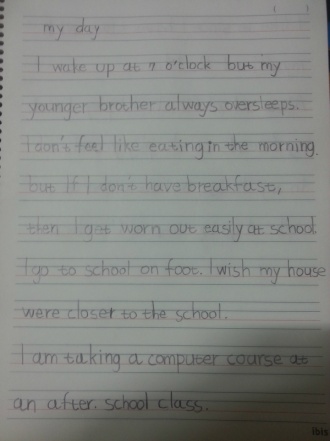 my day
I wake up at 7 o'clock but my
younger brother always oversleeps.
I don't feel like eating in the morning.
but If I don't have breakfast,
then I get worn out easily at school.
I go to school on foot. I wish my house
were closer to the school.
I am taking a computer course at
an after. school class.
ibis